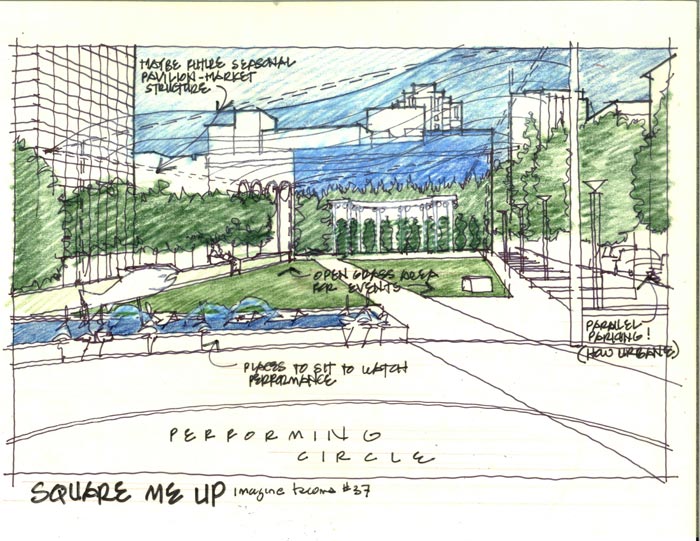 MAYBE FUTURE SEASONAL
PAVILION-MARKET
STRUCTURE
OPEN GRASS AREA
FOR EVENTS
PARALLEL
PARKING!
(HOW URBANE)
PLACES TO SIT TO WATCH
PERFORMANCE
PERFORMING
CIRCLE
SQUARE ME UP imagine tacoma #37